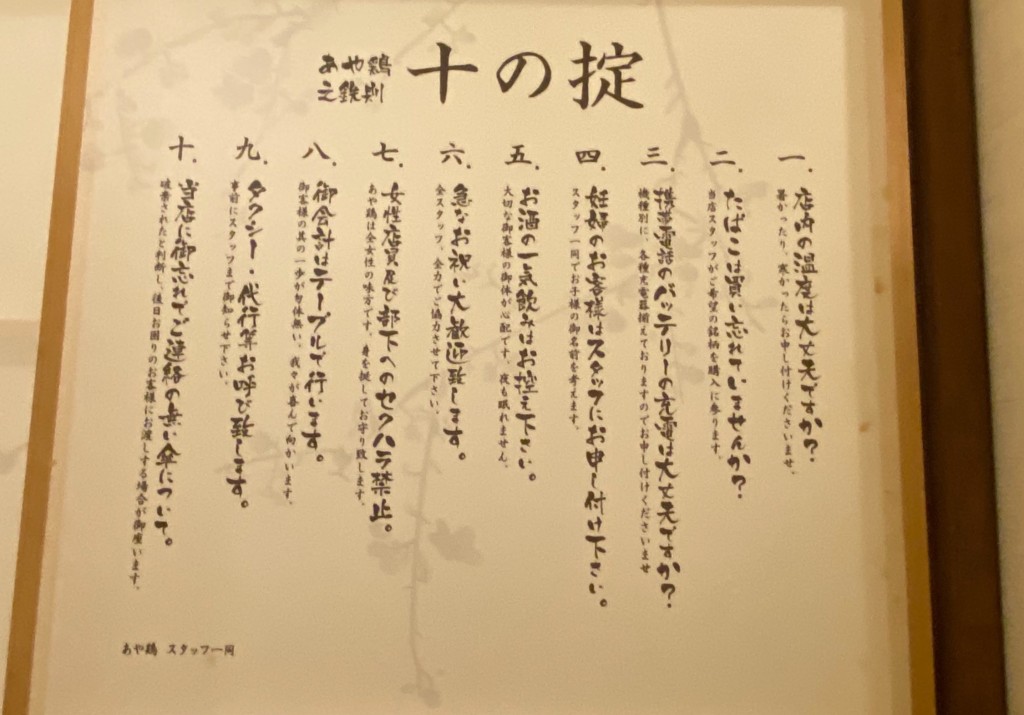 十の掟
あや鶏
之鉄則
一. 店内の温度は大丈夫ですか?
暑かったり、寒かったらお申し付けくださいませ。
二. たばこは買い忘れていませんか?
当店スタッフがご希望の銘柄を購入に参ります。
三. 携帯電話のバッテリーの充電は大丈夫ですか?
機種別に、各種充電器揃えておりますのでお申し付けくださいませ
四. 妊婦のお客様はスタッフにお申し付け下さい。
スタッフ一同でお子様の御名前を考えます。
五. お酒の一気飲みはお控え下さい。
大切な御客様の御体が心配です。夜も眠れません。
六. 急なお祝い大歓迎致します。
全スタッフ、全力でご協力させて下さい。
七. 女性店員及び部下へのセクハラ禁止。
あや鶏は全女性の味方です。身を挺してお守り致します。
八. 御会計はテーブルで行います。
御客様の其の一歩が勿体無い。我々が喜んで向かいます。
九. タクシー・代行等お呼び致します。
事前にスタッフまで御知らせ下さい。
十. 当店に御忘れでご連絡の無い傘について。
破棄されたと判断し、後日お困りのお客様にお渡しする場合が御座います。
あや鶏 スタッフ一同